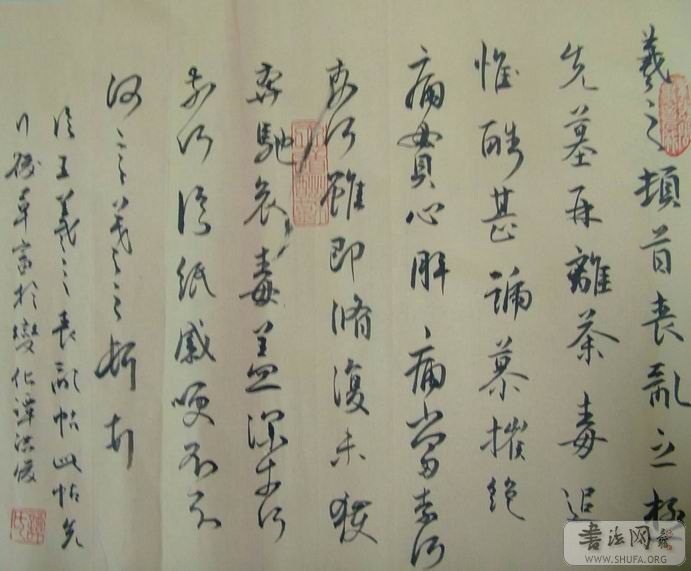 羲之頓首喪亂之極
先墓再離荼毒追
惟酷甚號慕摧絕
痛貫心肝痛當柰何
柰何雖即脩復未獲
奔馳哀毒益深柰何
柰何臨紙感哽不知
何言羲之頓首
臨王羲之喪亂帖此帖先
行後草富於變化譚洪
書法网
WWW.SHUFA.ORG